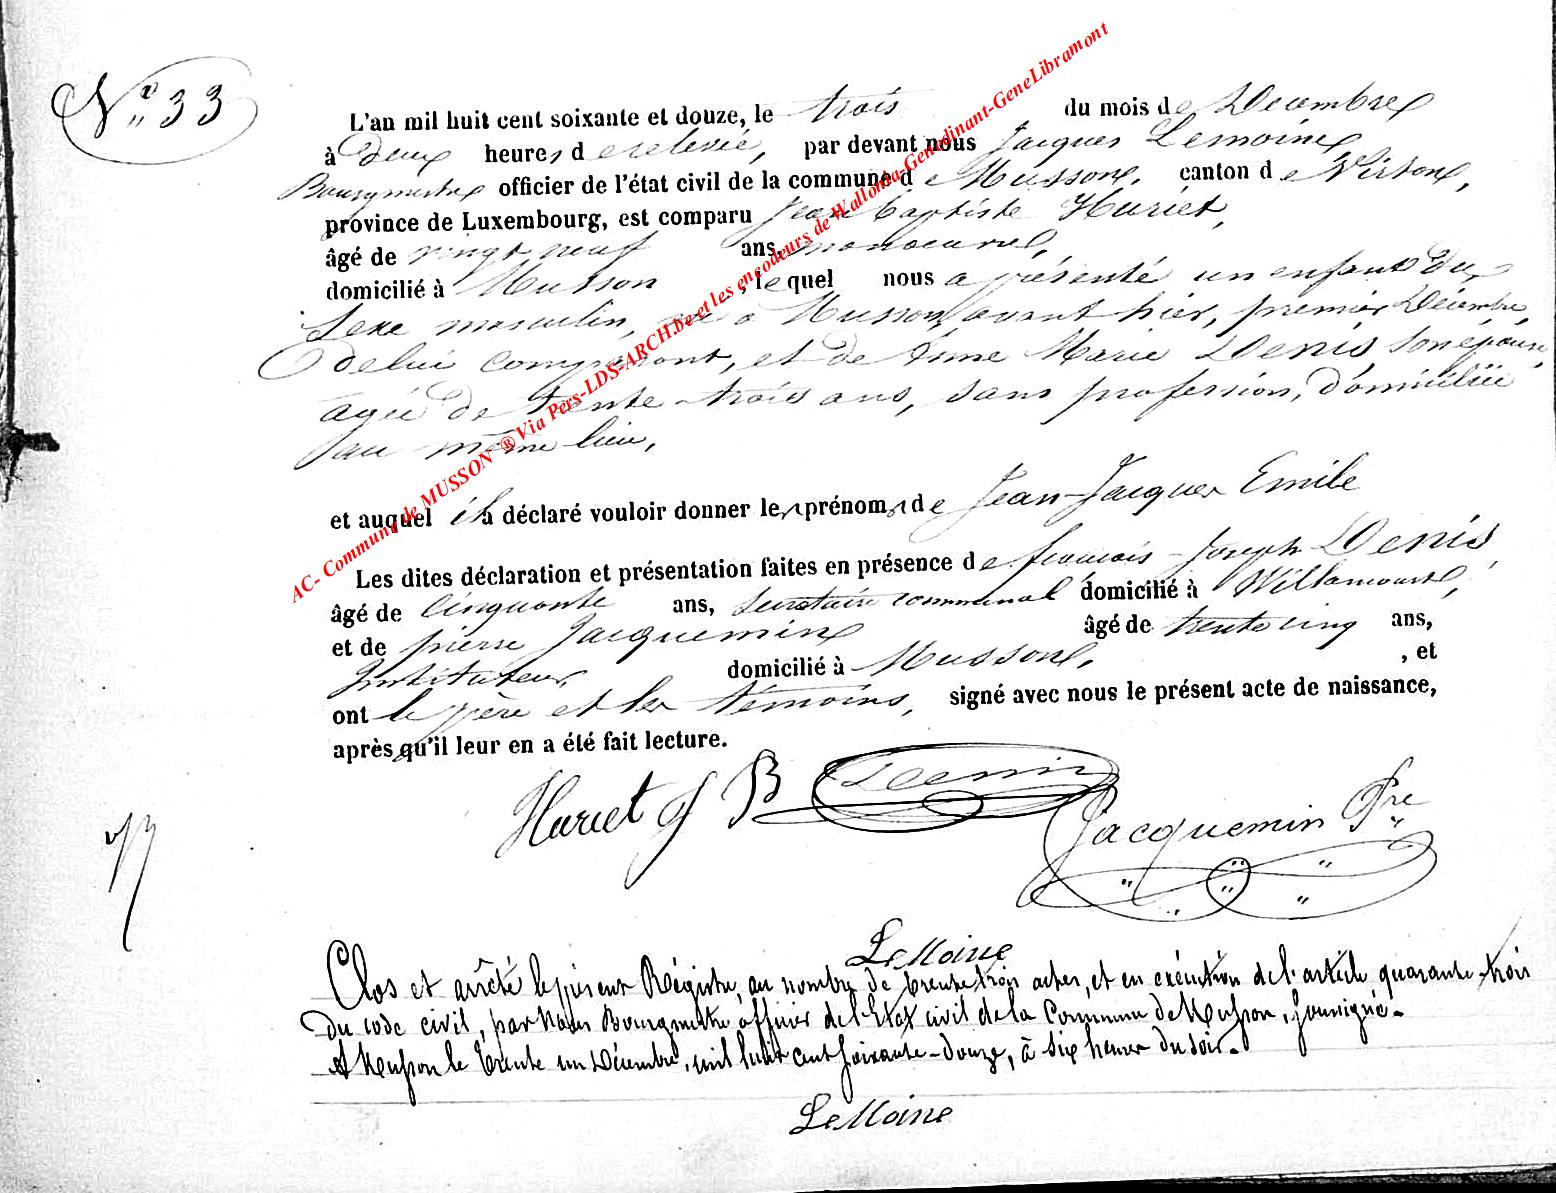 N° 33
L'an mil huit cent soixante et douze, le trois du mois de Décembre
à deux heures de relevée, par devant nous Jacques Lemoine
Bourgmestre officier de l'état civil de la commune de Musson, canton de Virton,
province de Luxembourg, est comparu Jean Baptiste Huriet,
âgé de vingt neuf ans, manoeuvre,
domicilié à Musson, lequel nous a présenté un enfant du
sexe masculin, né à Musson, avant hier, premier Décembre,
de lui comparant, et de Anne Marie Denis son épouse,
agée de trente-trois ans, sans profession, domiciliée
au même lieu,
et auquel il a déclaré vouloir donner les prénoms de Jean-Jacques Emile
Les dites déclaration et présentation faites en présence de françois-Joseph Denis,
âgé de cinquante ans, secretaire communal domicilié à Willancourt,
et de pierre Jacquemin âgé de trente cinq ans,
Instituteur, domicilié à Musson, , et
ont le père et les témoins, signé avec nous le présent acte de naissance,
après qu'il leur en a été fait lecture.
Huriet J B Denis
Jacquemin Pre
LeMoine
Clos et arrêté le présent Régistre, au nombre de trente trois actes, et en exécution de l'article quarante-trois
du code civil, par Nous Bourgmestre officier de l'Etat civil de la Commune de Musson, soussigné.
A Musson le trente un Décembre, mil huit cent soixante-douze, à six heures du soir.
LeMoine
AC- Commune de MUSSON ® Via Pers-LDS-ARCH.be et les encodeurs de Wallonia-Genedinant-GeneLibramont